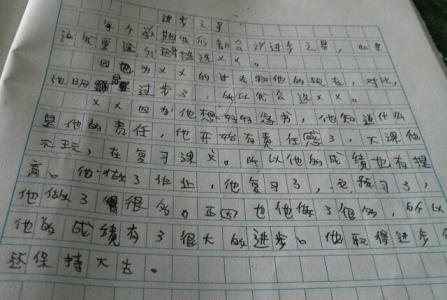 进步之星
每个学期我们都会评进步之星，如果
让我重选我还是选XX。
因为XX的过去和他的现在，对比，
他明显进步了，所以我会选XX。
XX因为他想好好念书，他知道什么
是他的责任，他开始有责任感了，下课他
不玩，在复习课文。所以他的成绩也有提
高。他做了作业，他复习了，预习了，
他做了很多。正因他做了很多，所以
他的成绩有了很大的进步。他取得进步会
还保持下去。